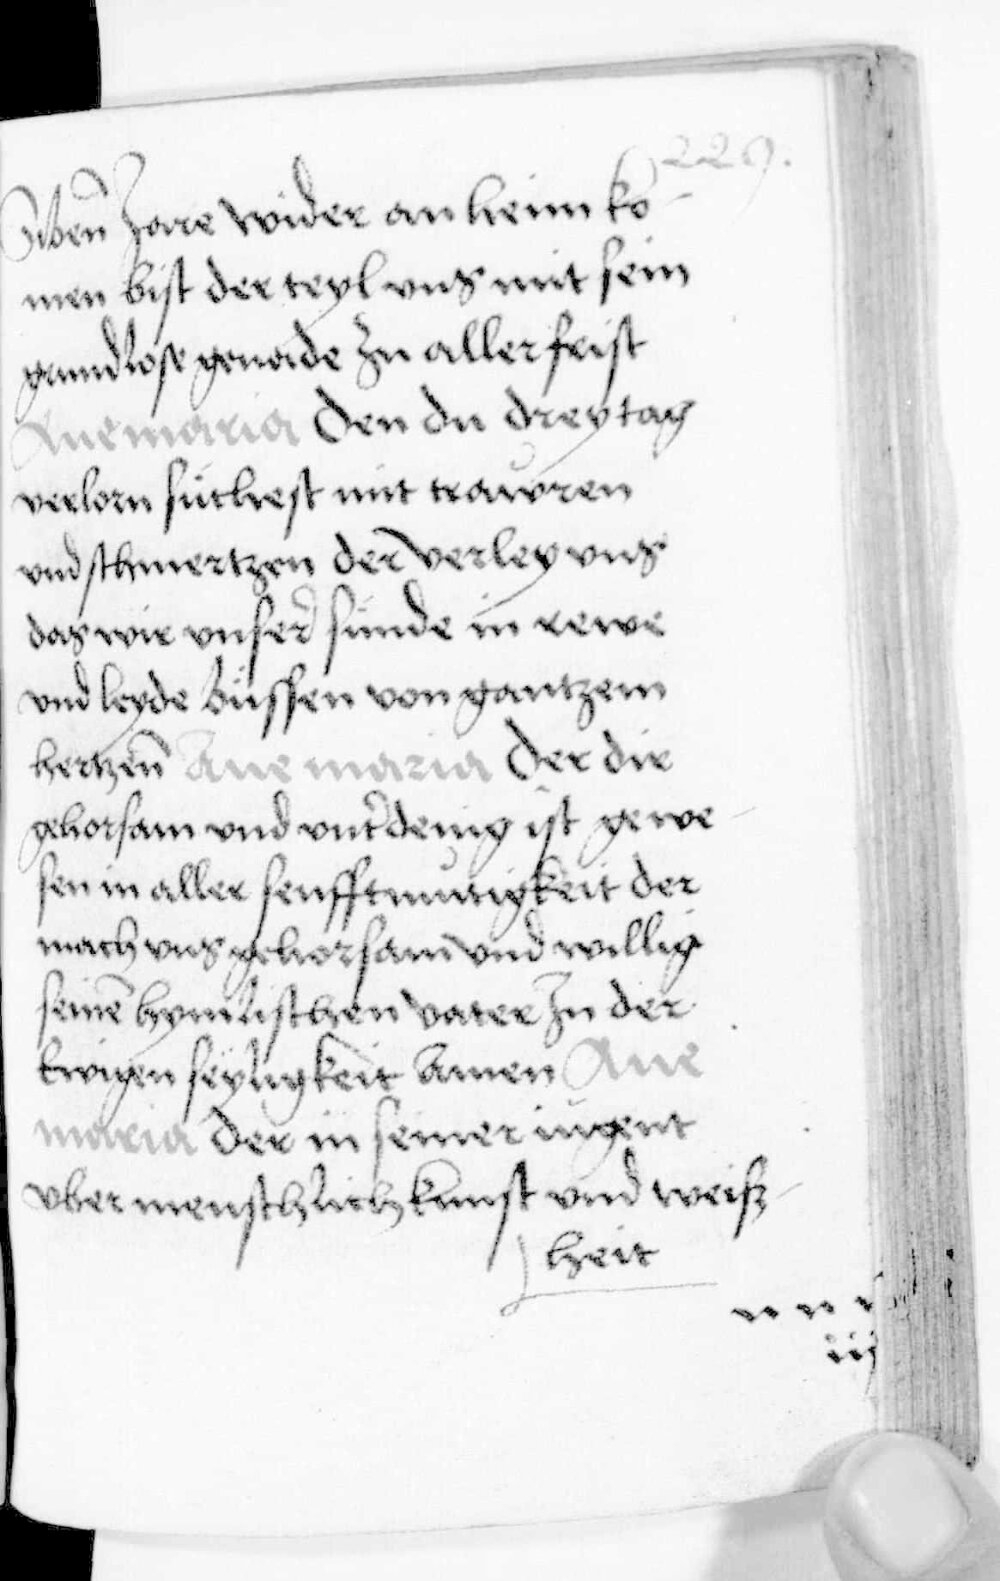 229.
Siben Jare wider an heim ko-
men bist der teyl vns mit sein
grundlose genade zu aller frist
Aue maria Den du drey tag
verlorn suchest mit trauren
vnd schmertzen der verley vns
das wir vnser sunde in rewe
vnd leyde büssen von gantzem
hertzen Aue maria Der dir
gehorsam vnd vnterdenig ist gewe-
sen in aller senfftmutigkeit der
mach vns gehorsam vnd willig
seinem hymlischen vater zu der
Ewigen seyligkeit Amen Aue
maria Der in seiner iugent
vber menschlich kunst vnd weiß-
heit
n n
iij